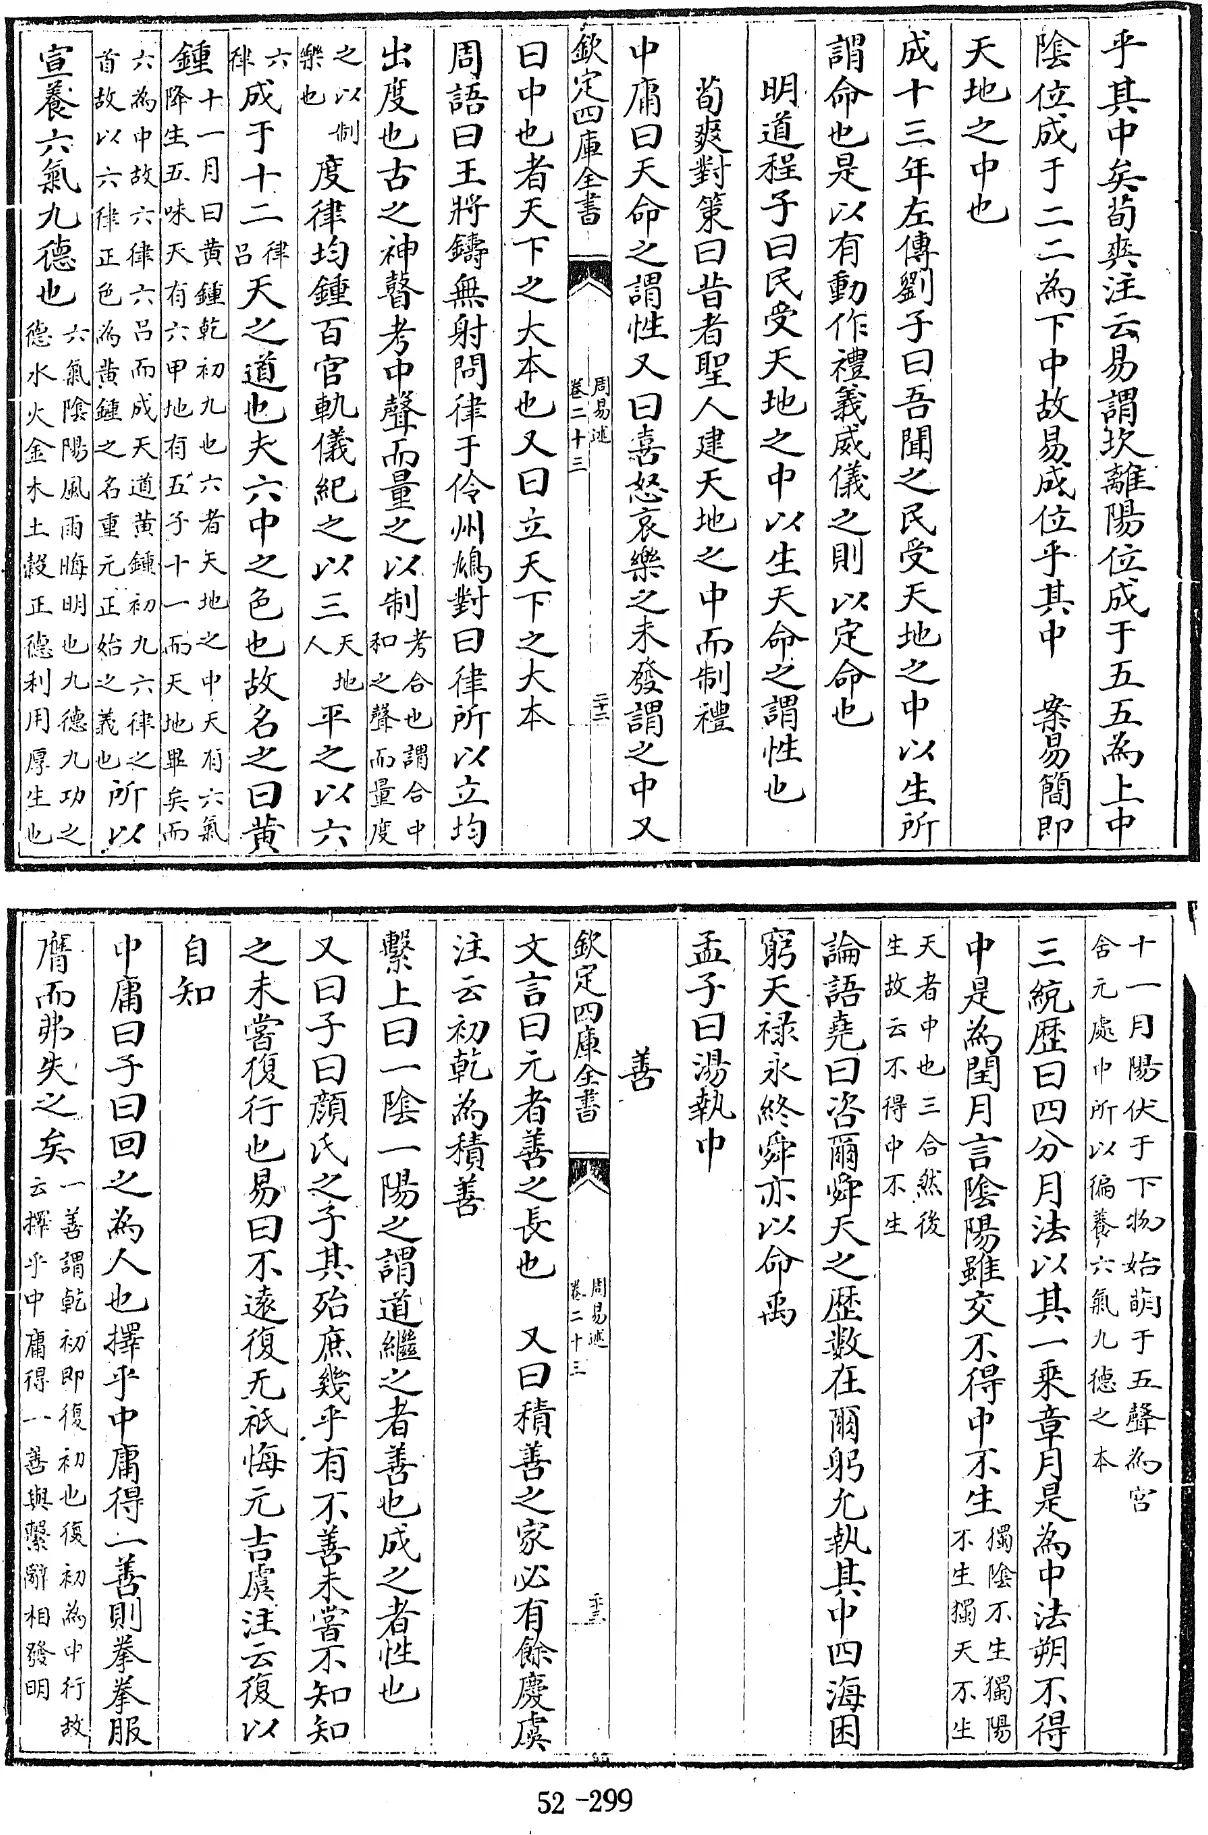 乎其中矣荀爽注云易謂坎離陽位成于五五為上中
陰位成于二二為下中故易成位乎其中　案易簡即
天地之中也
成十三年左傳劉子曰吾聞之民受天地之中以生所
謂命也是以有動作禮義威儀之則以定命也
明道程子曰民受天地之中以生天命之謂性也
荀爽對策曰昔者聖人建天地之中而制禮
中庸曰天命之謂性又曰喜怒哀樂之未發謂之中又
欽定四庫全書
周易述
卷二十三
二十二
曰中也者天下之大本也又曰立天下之大本
周語曰王將鑄無射問律于伶州鳩對曰律所以立均
出度也古之神瞽考中聲而量之以制考合也謂合中
和之聲而量度
之以制
樂也度律均鍾百官軌儀紀之以三天地
人平之以六
六
律成于十二律
呂天之道也夫六中之色也故名之曰黃
鍾十一月曰黃鍾乾初九也六者天地之中天有六氣
降生五味天有六甲地有五子十一而天地畢矣而
六為中故六律六呂而成天道黃鍾初九六律之
首故以六律正色為黃鍾之名重元正始之義也所以
宣養六氣九德也六氣陰陽風雨晦明也九德九功之
德水火金木土穀正德利用厚生也
十一月陽伏于下物始萌于五聲為宮
含元處中所以徧養六氣九德之本
三統歷曰四分月法以其一乘章月是為中法朔不得
中是為閏月言陰陽雖交不得中不生獨陰不生獨陽
不生獨天不生
天者中也三合然後
生故云不得中不生
論語堯曰咨爾舜天之歷數在爾躬允執其中四海困
窮天祿永終舜亦以命禹
孟子曰湯執中
善
欽定四庫全書
周易述
卷二十三
二十三
文言曰元者善之長也　又曰積善之家必有餘慶虞
注云初乾為積善
繫上曰一陰一陽之謂道繼之者善也成之者性也
又曰子曰顏氏之子其殆庶幾乎有不善未嘗不知知
之未嘗復行也易曰不遠復无祇悔元吉虞注云復以
自知
中庸曰子曰回之為人也擇乎中庸得一善則拳拳服
膺而弗失之矣一善謂乾初即復初也復初為中行故
云擇乎中庸得一善與繫辭相發明
52-299